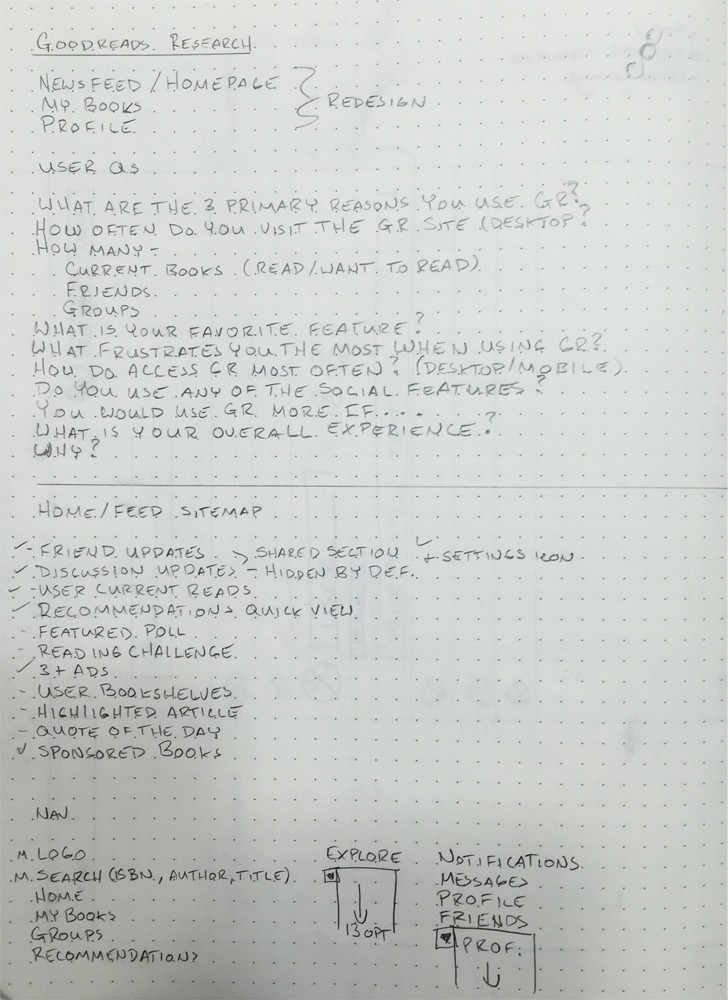 GOODREADS RESEARCH
NEWSFEED / HOMEPAGE
MY BOOKS
PROFILE
REDESIGN
USER Qs
WHAT ARE THE 3 PRIMARY REASONS YOU USE GR?
HOW OFTEN DO YOU VISIT THE GR SITE (DESKTOP?
HOW MANY -
CURRENT BOOKS (READ/WANT TO READ)
FRIENDS
GROUPS
WHAT IS YOUR FAVORITE FEATURE?
WHAT FRUSTRATES YOU THE MOST WHEN USING GR?
HOW DO ACCESS GR MOST OFTEN? (DESKTOP/MOBILE)
DO YOU USE ANY OF THE SOCIAL FEATURES?
YOU WOULD USE GR MORE IF....
WHAT IS YOUR OVERALL EXPERIENCE?
WHY?
HOME/FEED SITEMAP
✓- FRIEND UPDATES > SHARED SECTION ✓ + SETTINGS ICON
✓ DISCUSSION UPDATES - HIDDEN BY DEF.
✓ - USER CURRENT READS
✓ RECOMMENDATIONS QUICK VIEW
- FEATURED POLL
- READING CHALLENGE
✓ 3+ ADS
- USER BOOKSHELVES
- HIGHLIGHTED ARTICLE
- QUOTE OF THE DAY
✓ SPONSORED BOOKS
NAV
M. LOGO
M. SEARCH (ISBN, AUTHOR, TITLE)
HOME
MY BOOKS
GROUPS
RECOMMENDATIONS
EXPLORE
13 OPT
NOTIFICATIONS
MESSAGES
PROFILE
FRIENDS
PROF: